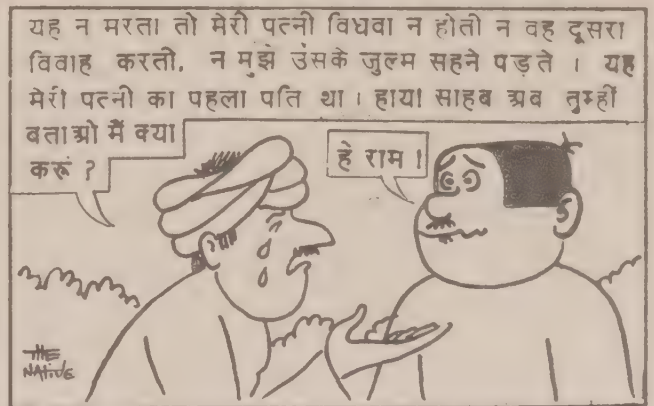 यह न मरता तो मेरी पत्नी विधवा न होती न वह दूसरा
विवाह करती, न मुझे उसके जुल्म सहने पड़ते । यह
मेरी पत्नी का पहला पति था । हाय। साहब अब तुम्हीं
बताओ मैं क्या
करूं ?
हे राम ।
THE
NATIVE